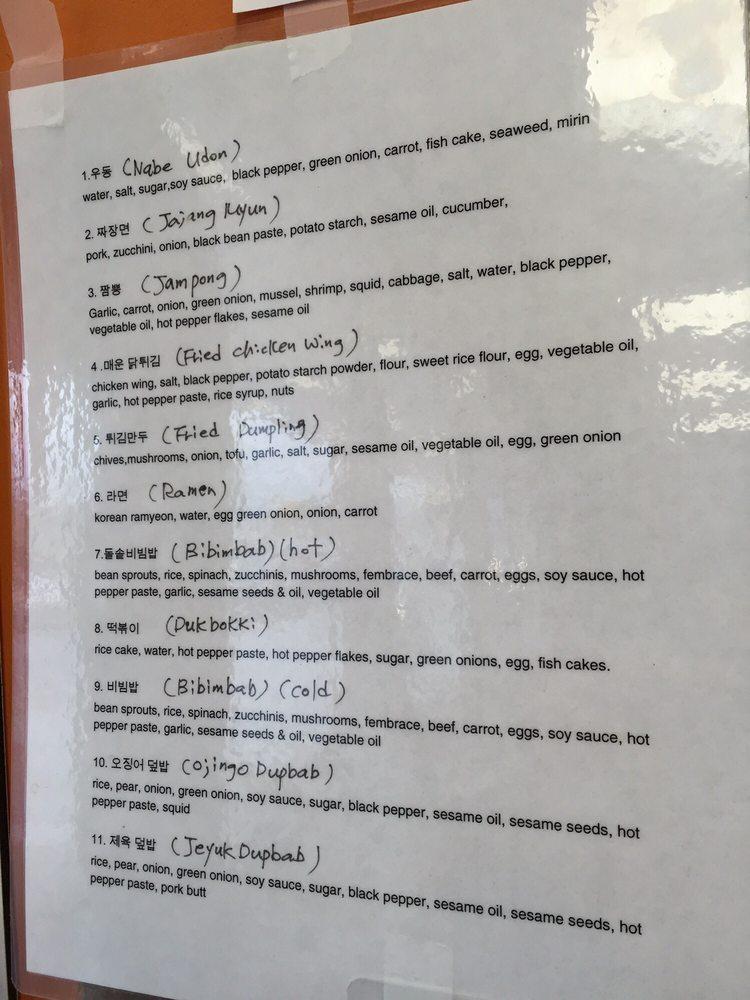 1.우동 (Nabe Udon)
water, salt, sugar,soy sauce, black pepper, green onion, carrot, fish cake, seaweed, mirin
2. 짜장면 (Jajang Myun)
pork, zucchini, onion, black bean paste, potato starch, sesame oil, cucumber,
3. 짬뽕 (Jampong)
Garlic, carrot, onion, green onion, mussel, shrimp, squid, cabbage, salt, water, black pepper,
vegetable oil, hot pepper flakes, sesame oil
4 .매운 닭튀김 (Fried chicken wing)
chicken wing, salt, black pepper, potato starch powder, flour, sweet rice flour, egg, vegetable oil,
garlic, hot pepper paste, rice syrup, nuts
5. 튀김만두 (Fried Dumpling)
chives,mushrooms, onion, tofu, garlic, salt, sugar, sesame oil, vegetable oil, egg, green onion
6. 라면 (Ramen)
korean ramyeon, water, egg green onion, onion, carrot
7.돌솥비빔밥 (Bibimbab) (hot)
bean sprouts, rice, spinach, zucchinis, mushrooms, fembrace, beef, carrot, eggs, soy sauce, hot
pepper paste, garlic, sesame seeds & oil, vegetable oil
8. 떡볶이 (Dukbokki)
rice cake, water, hot pepper paste, hot pepper flakes, sugar, green onions, egg, fish cakes.
9. 비빔밥 (Bibimbab) (cold)
bean sprouts, rice, spinach, zucchinis, mushrooms, fembrace, beef, carrot, eggs, soy sauce, hot
pepper paste, garlic, sesame seeds & oil, vegetable oil
10. 오징어 덮밥 (Ojingo Dupbab)
rice, pear, onion, green onion, soy sauce, sugar, black pepper, sesame oil, sesame seeds, hot
pepper paste, squid
11. 제육 덮밥 (Jeyuk Dupbab)
rice, pear, onion, green onion, soy sauce, sugar, black pepper, sesame oil, sesame seeds, hot
pepper paste, pork butt